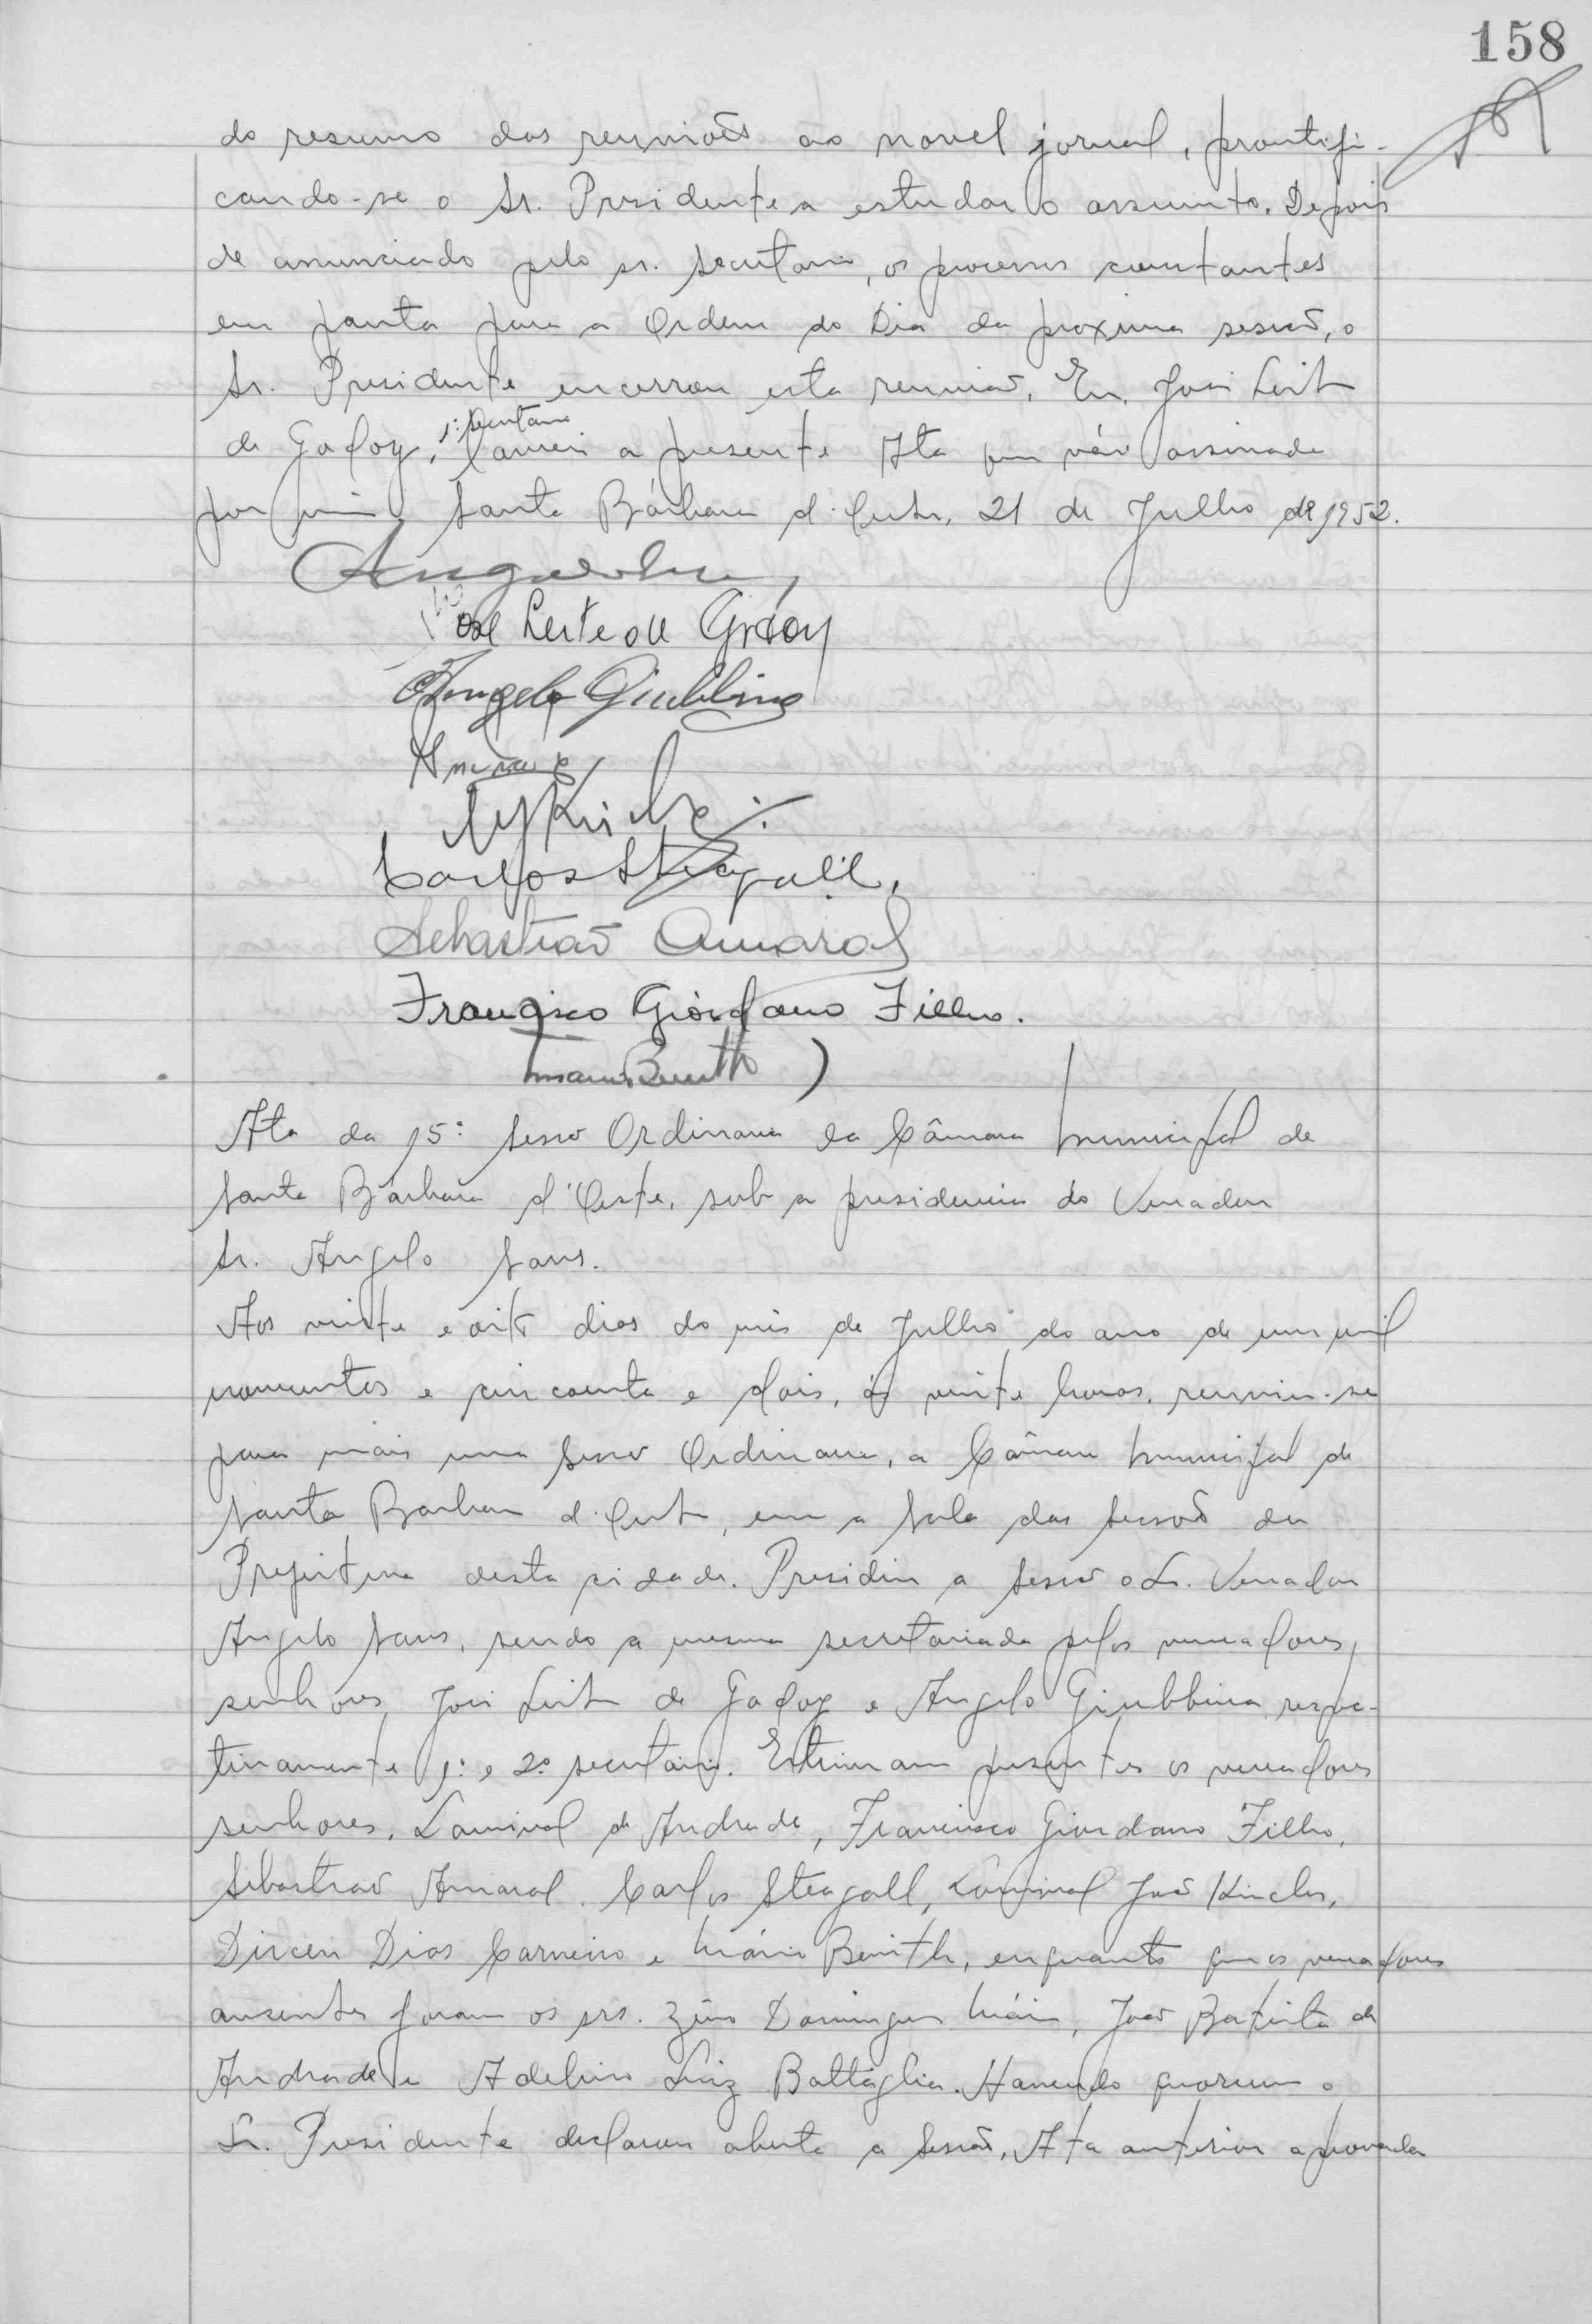 158
do resumo das reuniões ao novel jornal, prontifi-
cando-se o Sr. Presidente a estudar o assunto. Depois
de anunciado pelo sr. secretario, os processos constantes
em pauta para a Ordem do Dia da proxima sessão, o
Sr. Presidente encerrou esta reunião. Eu, José Leite
de Godoy, 1º secretario lavrei a presente Ata que vai assinada
por mim Santa Bárbara d'Oeste, 21 de Julho de 1952.
José Leite de Godoy
Angelo Giubbina
Carlos Steagall.
Sebastião Amaral
Francisco Giordano Filho.
Mario Benith
Ata da 15ª Sessão Ordinaria da Câmara Municipal de
Santa Bárbara d'Oeste, sub a presidencia do Vereador
Sr. Angelo Sans.
Aos vinte e oito dias do mês de Julho do ano de um mil
novecentos e cincoenta e dois, ás vinte horas, reuniu-se
para mais uma Sessão Ordinaria, a Câmara Municipal de
Santa Barbara d'Oeste, em a Sala das Sessões da
Prefeitura desta cidade. Presidiu a Sessão o Sr. Vereador
Angelo Sans, sendo a mesma secretariada pelos vereadores,
senhores José Leite de Godoy e Angelo Giubbina respec-
tivamente 1º e 2º secretario. Estiveram presentes os vereadores
senhores, Lourival de Andrade, Francisco Giordano Filho,
Sebastião Amaral, Carlos Steagall, Lourival João Kinche,
Dirceu Dias Carneiro e Mário Benith, enquanto que os vereadores
ausentes foram os srs. Zino Domingues Máia, João Batista de
Andrade e Adelino Luiz Battaglia. Havendo quorum o
Sr. Presidente declarou aberta a Sessão. Ata anterior aprovada